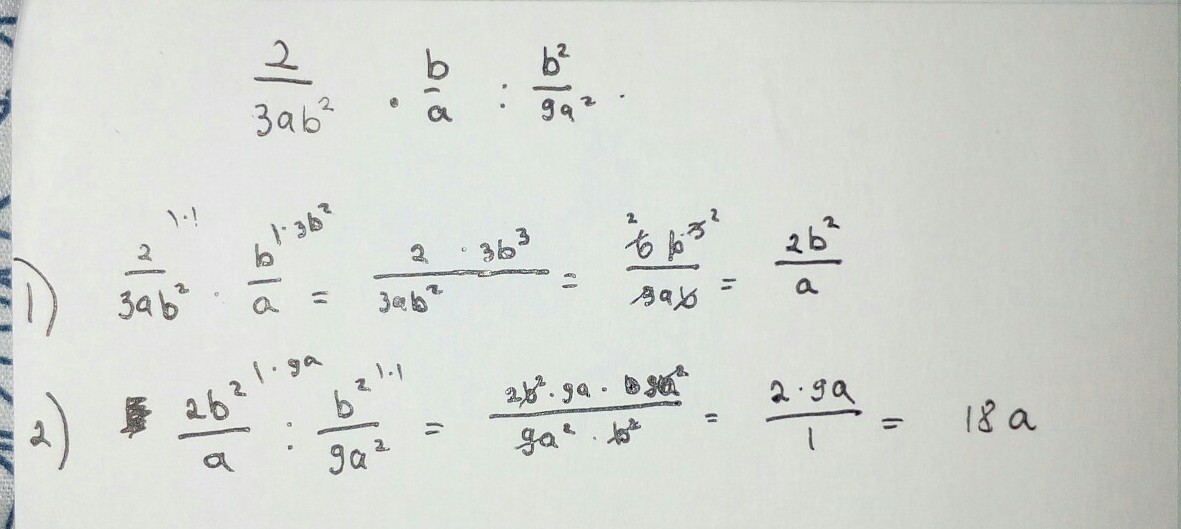 2/(3ab²) · b/a : b²/(9a²) .
1) 2/(3ab²) |·1 · b/a |·3b² = (2 · 3b³)/(3ab²) = (6b³)/(3ab) ² ² = 2b²/a
2) 2b²/a |·9a : b²/(9a²) |·1 = (2b² · 9a · 9a²)/(9a² · b²) = (2·9a)/1 = 18a